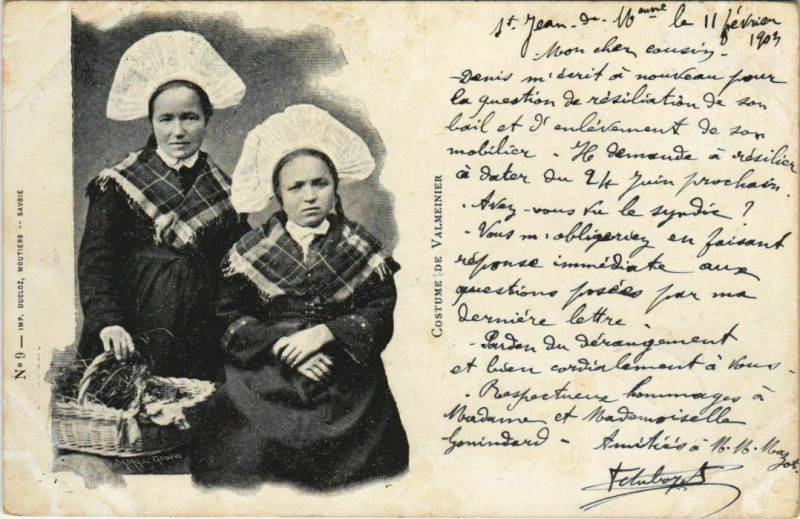 St Jean-de-Maune le 11 février
1903
Mon cher cousin -
Denis m'écrit à nouveau pour
la question de résiliation de son
bail et d'enlèvement de son
mobilier - Il demande à résilier
à dater du 24 Juin prochain.
- Avez-vous vu le syndic ?
- Vous m'obligeriez en faisant
réponse immédiate aux
questions posées par ma
dernière lettre.
- Pardon du dérangement
et bien cordialement à Vous -
- Respectueux hommages à
Madame et Mademoiselle
Gonindard - Amitiés à
COSTUME DE VALMEINIER
No 9 — IMP. DUCLOZ, MOUTIERS -- SAVOIE